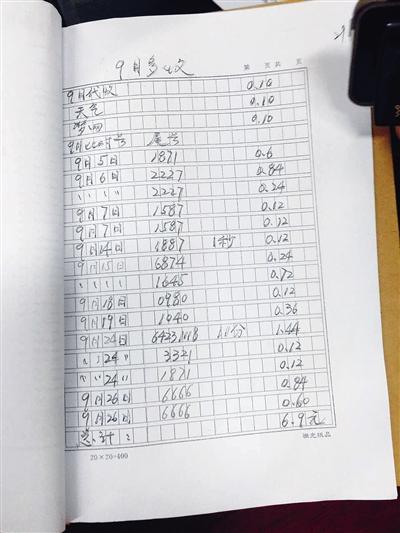 9月多收
第 页共 页
9月代收 0.10
天气 0.10
0.10
9月 尾号
9月5日 1871 0.6
9月6日 2227 0.84
〃 〃 〃 〃 2227 0.24
9月7日 1587 0.12
9月7日 1587 0.12
9月14日 1887 1秒 0.12
9月15日 6874 0.24
〃 〃 〃 〃 1645 0.72
9月18日 0980 0.12
9月19日 1040 0.36
9月24日 分 1.44
〃 〃 24 〃 3321 0.12
〃 〃 24 〃 1871 0.12
9月26日 6666 0.84
9月26日 6666 0.60
总计: 6.9元
20×20=400